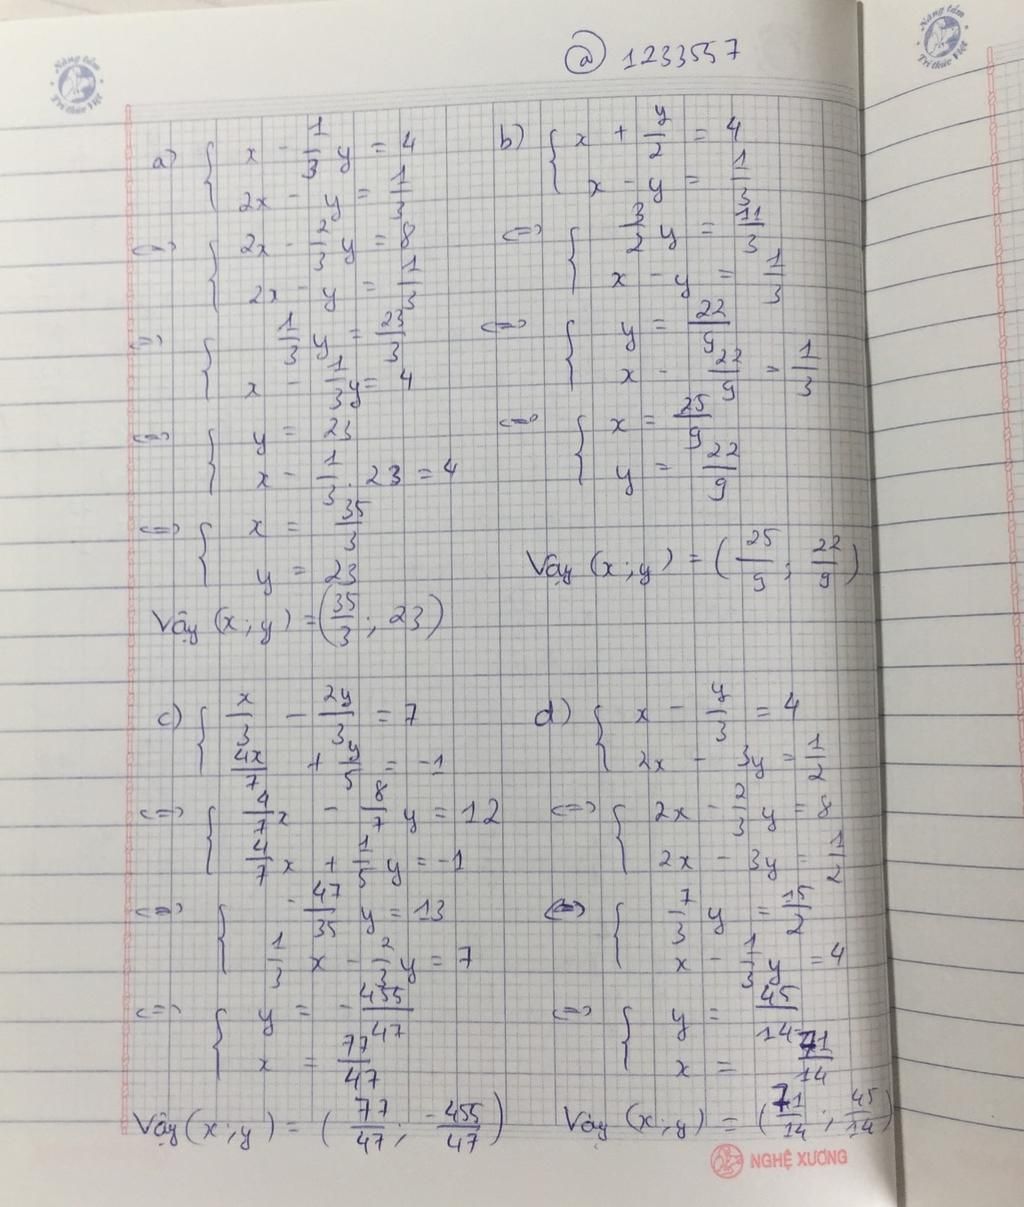 Nâng tầm
Trí thức Việt
Nâng tầm
Trí thức Việt
@ 1233557
a) { x - 1/3 y = 4
2x - y = 1/3
<=> { 2x - 2/3 y = 8
2x - y = 1/3
=> { 1/3 y = 23/3
x - 1/3 y = 4
<=> { y = 23
x - 1/3 . 23 = 4
<=> { x = 35/3
y = 23
Vậy (x ; y) = (35/3 ; 23)
b) { x + y/2 = 4
x - y = 1/3
<=> { 3/2 y = 11/3
x - y = 1/3
<=> { y = 22/9
x - 22/9 = 1/3
<=> { x = 25/9
y = 22/9
Vậy (x ; y) = (25/9 ; 22/9)
c) { x/3 - 2y/3 = 7
4x/7 + y/5 = -1
<=> { 4/7 x - 8/7 y = 12
4/7 x + 1/5 y = -1
<=> { -47/35 y = 13
1/3 x - 2/3 y = 7
<=> { y = -455/47
x = 77/47
Vậy (x ; y) = (77/47 ; -455/47)
d) { x - y/3 = 4
2x - 3y = 1/2
<=> { 2x - 2/3 y = 8
2x - 3y = 1/2
<=> { 7/3 y = 15/2
x - 1/3 y = 4
<=> { y = 45/14
x = 71/14
Vậy (x ; y) = (71/14 ; 45/14)
NGHỆ XƯƠNG